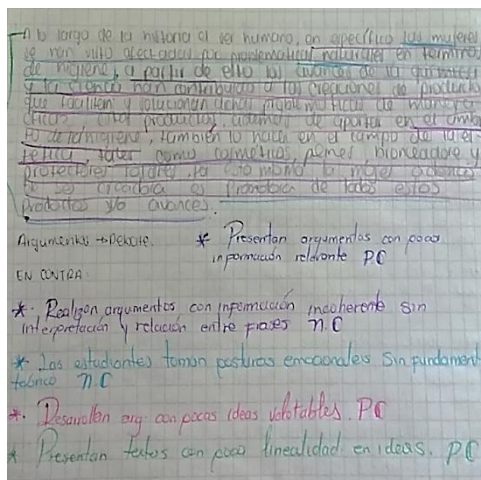 A lo largo de la historia el ser humano, en específico las mujeres
se han visto afectadas por problematicas naturales en terminos
de higiene, a partir de ello los avances de la química
y la ciencia han contribuido a las creaciones de productos
que faciliten y solucionan dichas problematicas de manera
productos, además de aportar en el ambi
to de la higiene, también lo hacen en el campo de la es
tetica, tales como cosmeticos, peines, y
protectores por eso mismo la mujer además
de ser es promotora de todos estos
productos y/o avances.
Argumentos → Debate.
* Presentan argumentos con poca
información relevante PC
EN CONTRA
*. Realizan argumentos con información incoherente sin
interpretación y relación entre frases n.C
* Los estudiantes toman posturas emocionales sin fundament
teórico n.C
*. Desarrollan arg. con pocas ideas debatables. PC
* Presentan textos con poca linealidad en ideas. PC